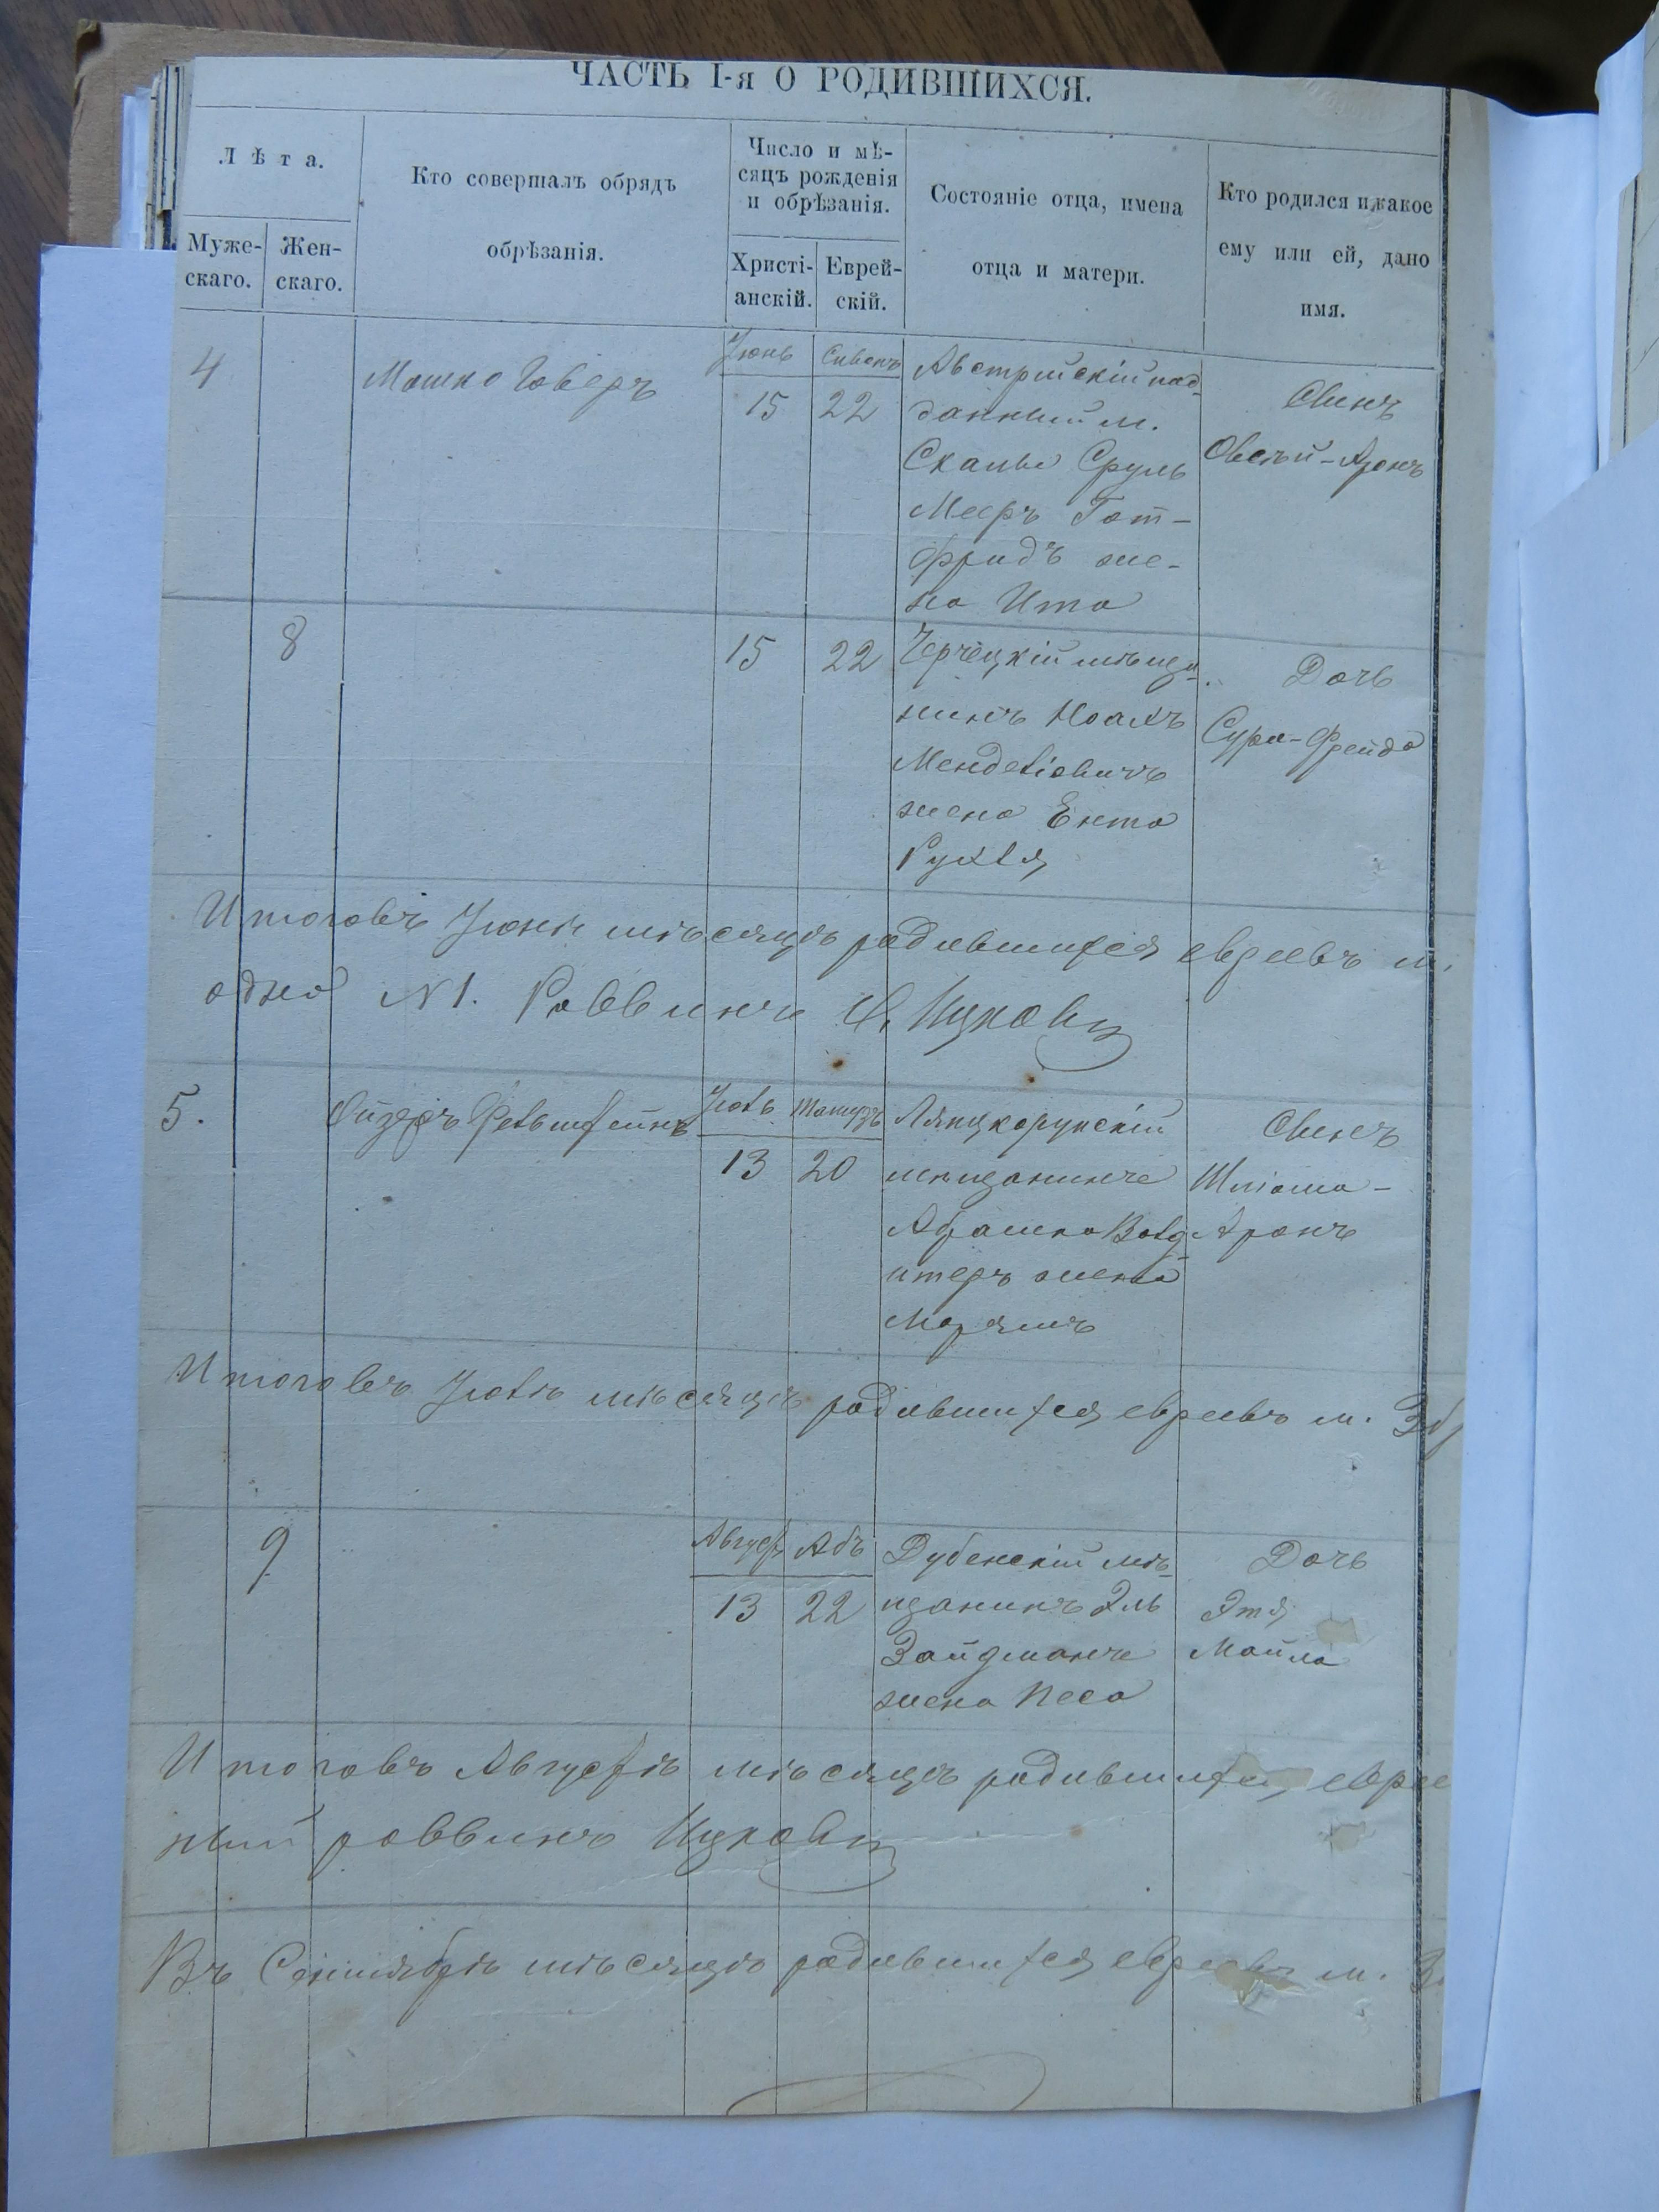 ЧАСТЬ I-я О РОДИВШИХСЯ.
Лѣта.
Муже-
скаго.
Жен-
скаго.
Кто совершалъ обрядъ
обрѣзанія.
Число и мѣ-
сяцъ рожденія
и обрѣзанія.
Христі-
анскій.
Еврей-
скій.
Состояніе отца, имена
отца и матери.
Кто родился и какое
ему или ей, дано
имя.
4
Мошко Говеръ
Іюнь
15
Сивонъ
22
Австрийскій под-
данный м.
Скалы Сруль
Мееръ Гот-
фридъ же-
на Ита
Сынъ
Овсѣй-
8
15
22
мѣща-
нинъ Ноахъ
жена Ента
Рухля
Дочь
Сура-Фрейда
Итого въ Іюнѣ мѣсяцѣ родившихся евреевъ м.
одно N 1. Раввинъ
5.
Ойзеръ Фельштейнъ
Іюль
13
Тамузъ
20
Ляцкорунскій
мѣщанинъ
Абрамко
итеръ жена
Марямъ
Сынъ
Шліома-
Аронъ
Итого въ Іюлѣ мѣсяцѣ родившихся евреевъ м. Зб
9
Август
13
Абъ
22
Дубенскій мѣ-
щанинъ Эль
Зайдманъ
жена Песа
Дочь
Этя
Майла
Итого въ Августѣ мѣсяцѣ родившихся евре
ный раввинъ
Въ Сентябрѣ мѣсяцѣ родившихся евреевъ м. З